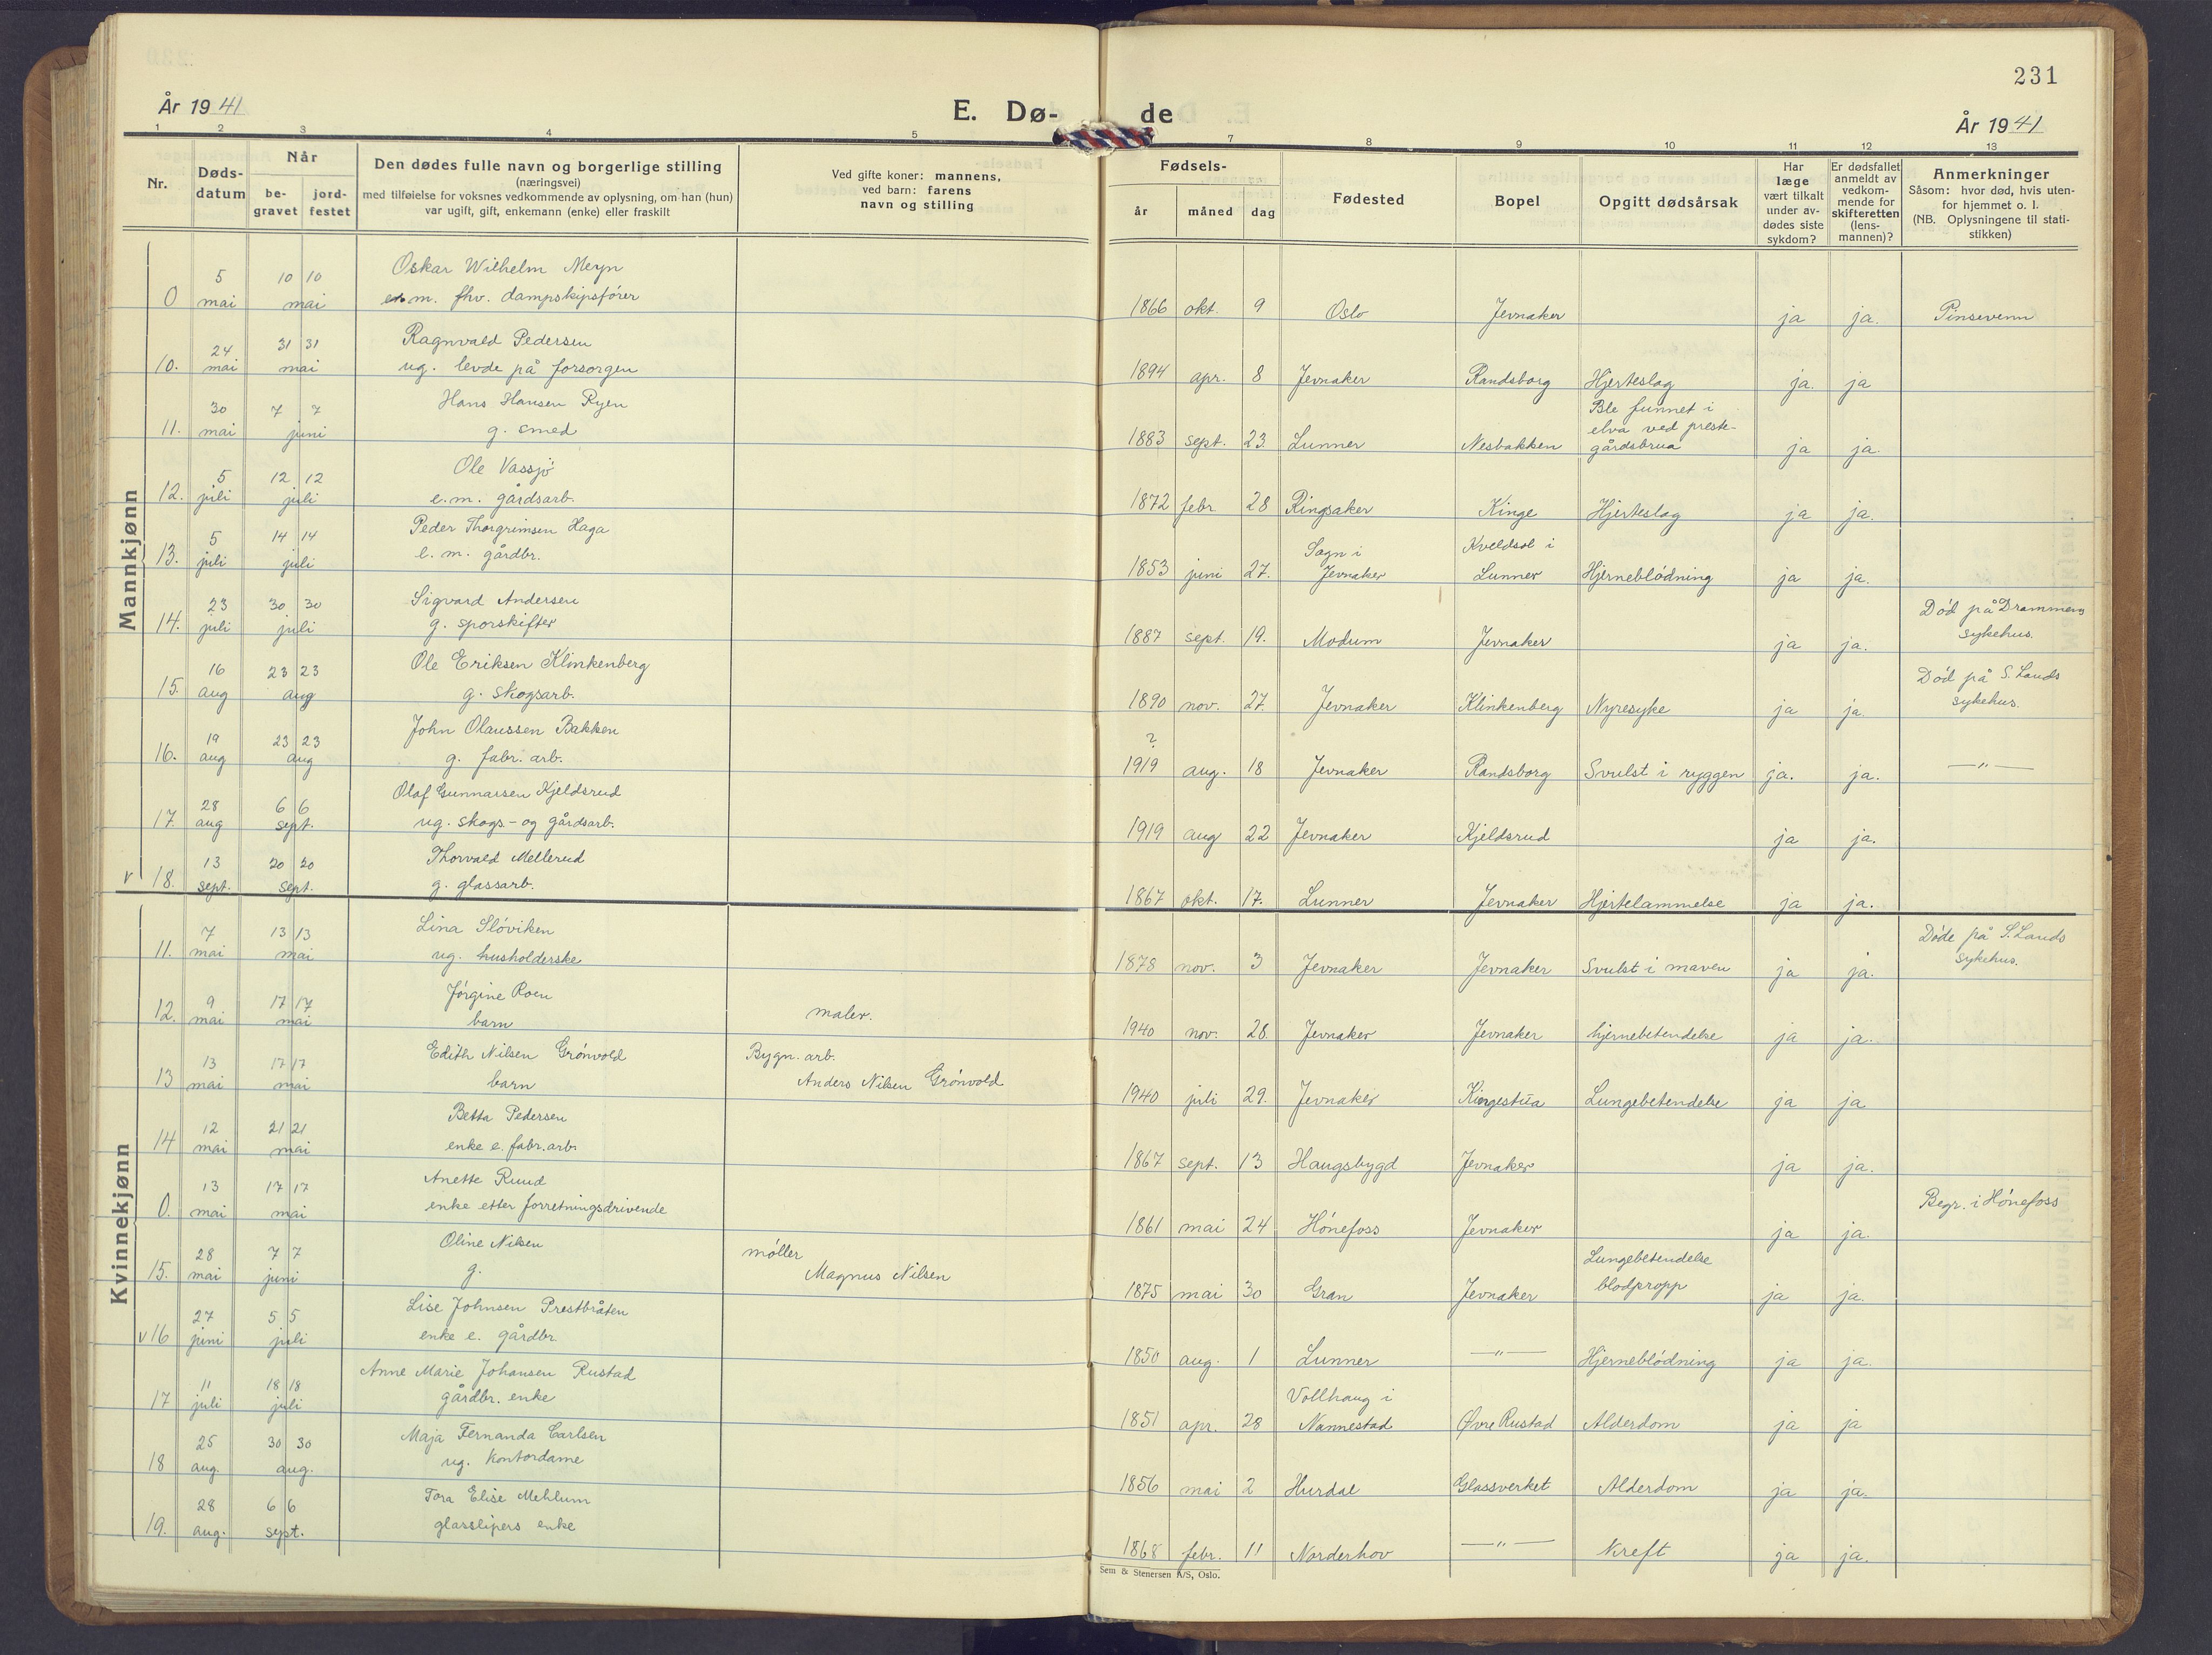 231
År 1941
E. Dø-
de
År 1941
1 2 3 4 5 7 8 9 10 11 12 13
Nr.
Døds-
datum
Når
be-
gravet
jord-
festet
Den dødes fulle navn og borgerlige stilling
(næringsvei)
med tilføielse for voksnes vedkommende av oplysning, om han (hun)
var ugift, gift, enkemann (enke) eller fraskilt
Ved gifte koner: mannens,
ved barn: farens
navn og stilling
Fødsels-
år måned dag
Fødested
Bopel
Opgitt dødsårsak
Har
læge
vært tilkalt
under av-
dødes siste
sykdom?
Er dødsfallet
anmeldt av
vedkom-
mende for
skifteretten
(lens-
mannen)?
Anmerkninger
Såsom: hvor død, hvis uten-
for hjemmet o. l.
(NB. Oplysningene til stati-
stikken)
Mannkjønn
5 10 10 Oskar Wilhelm Meyn
0 mai mai em. fhv. dampskipsfører 1866 okt. 9 Oslo Jevnaker ja ja. Pinsevenn
24 31 31 Ragnvald Pedersen
10. mai mai ug. levde på forsorgen 1894 apr. 8 Jevnaker Randsborg Hjerteslag ja. ja
30 7 7 Hans Hansen Ryen Ble funnet i
elva ved preste-
11. mai juni g. smed 1883 sept. 23 Lunner Nesbakken gårdsbrua ja ja.
5 12 12 Ole Vassjø
12. juli juli e.m. gårdsarb. 1872 febr. 28 Ringsaker Kinge Hjerteslag ja ja.
5 14 14 Peder Thorgrimsen Haga Sogn i Kveldsol i
13. juli juli e.m. gårdbr. 1853 juni 27. Jevnaker Lunner Hjerneblødning ja ja.
23 30 30 Sigvard Andersen Død på Drammens
14. juli juli g. sporskifter 1887 sept. 19. Modum Jevnaker ja ja. sykehus.
16 23 23 Ole Eriksen Klinkenberg Død på S. Lands
15. aug aug g. skogsarb. 1890 nov. 27. Jevnaker Klinkenberg Nyresyke ja ja. sykehus.
19 23 23 John Olaussen Bakken ?
16. aug aug g. fabr. arb. 1919 aug. 18 Jevnaker Randsborg Svulst i ryggen ja. ja. —"—
28 6 6 Olaf Gunnarsen Kjeldsrud
17. aug sept. ug. skogs- og gårdsarb. 1919 aug 22 Jevnaker Kjeldsrud ja ja.
13 20 20 Thorvald Mellerud
v 18. sept. sept. g. glassarb. 1867 okt. 17. Lunner Jevnaker Hjertelammelse ja ja.
Kvinnekjønn
7 13 13 Lina Sløviken Døde på S. Lands
11. mai mai ug. husholderske 1878 nov. 3 Jevnaker Jevnaker Svulst i maven ja ja. sykehus.
9 17 17 Jørgine Roen maler.
12. mai mai barn 1940 nov. 28 Jevnaker Jevnaker hjernebetendelse ja ja.
13 17 17 Edith Nilsen Grønvold Bygn. arb.
13 mai mai barn Anders Nilsen Grønvold 1940 juli 29. Jevnaker Kingestua Lungebetendelse ja ja
12 21 21 Betta Pedersen
14 mai mai enke e. fabr. arb. 1867 sept. 13 Haugsbygd Jevnaker ja ja.
13 17 17 Anette Ruud Begr. i Hønefoss
0. mai mai enke etter forretningsdrivende 1861 mai 24 Hønefoss Jevnaker ja ja.
28 7 7 Oline Nilsen møller Lungebetendelse
15. mai juni g. Magnus Nilsen 1875 mai 30 Gran Jevnaker blodpropp ja ja.
27 5 5 Lise Johnsen Prestbråten
v16 juni juli enke e. gårdbr. 1850 aug. 1 Lunner —"— Hjerneblødning ja ja.
11 18 18 Anne Marie Johansen Rustad Vollhaug i
17 juli juli gårdbr. enke 1851 apr. 28 Nannestad Øvre Rustad Alderdom ja ja
25 30 30 Maja Fernanda Carlsen
18 aug. aug. ug. kontordame 1856 mai 2 Hurdal Glassverket Alderdom ja ja.
28 6 6 Tora Elise Mehlum
19. aug. sept. glasslipers enke 1868 febr. 11 Norderhov —"— Kreft ja ja.
Sem & Stenersen A/S, Oslo.